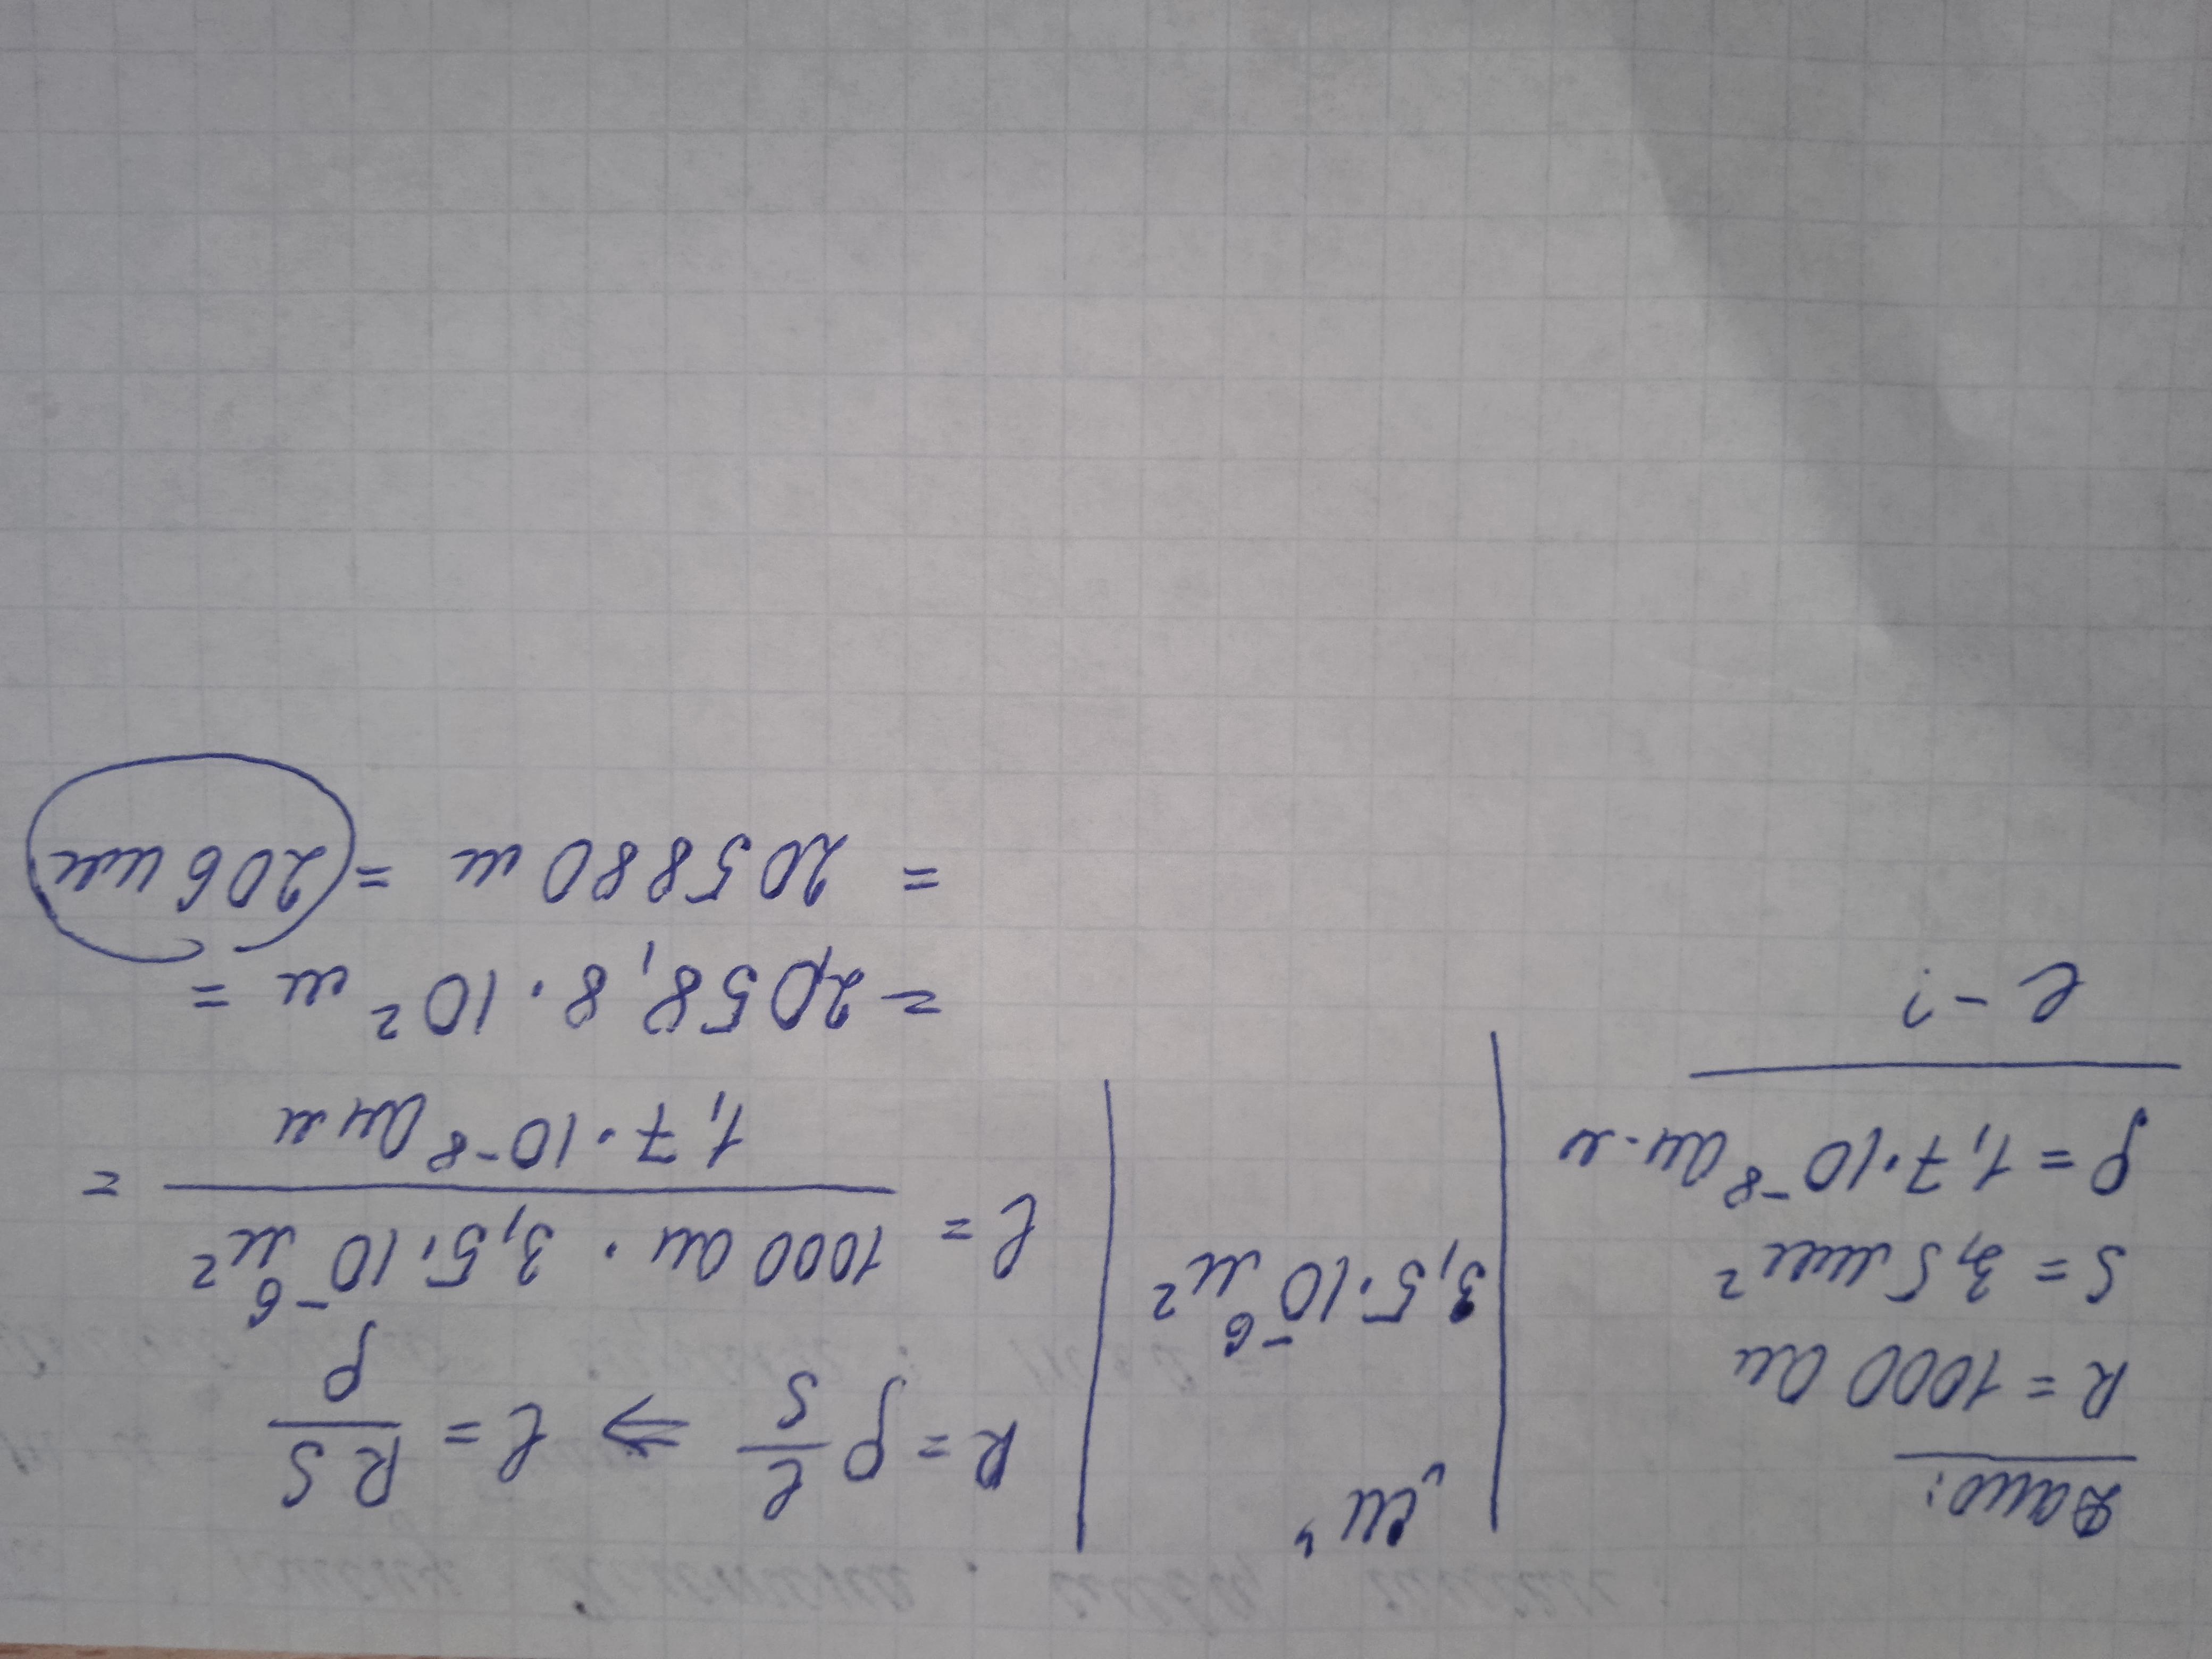 Дано:
R = 1000 Ом
S = 3,5 мм²
ρ = 1,7·10⁻⁸ Ом·м
ℓ - ?
„СИ“
3,5·10⁻⁶ м²
R = ρ ℓ/S ⇒ ℓ = RS/ρ
ℓ = 1000 Ом · 3,5·10⁻⁶ м² / 1,7·10⁻⁸ Ом м =
= 2058,8 · 10² м =
= 205880 м = 206 км